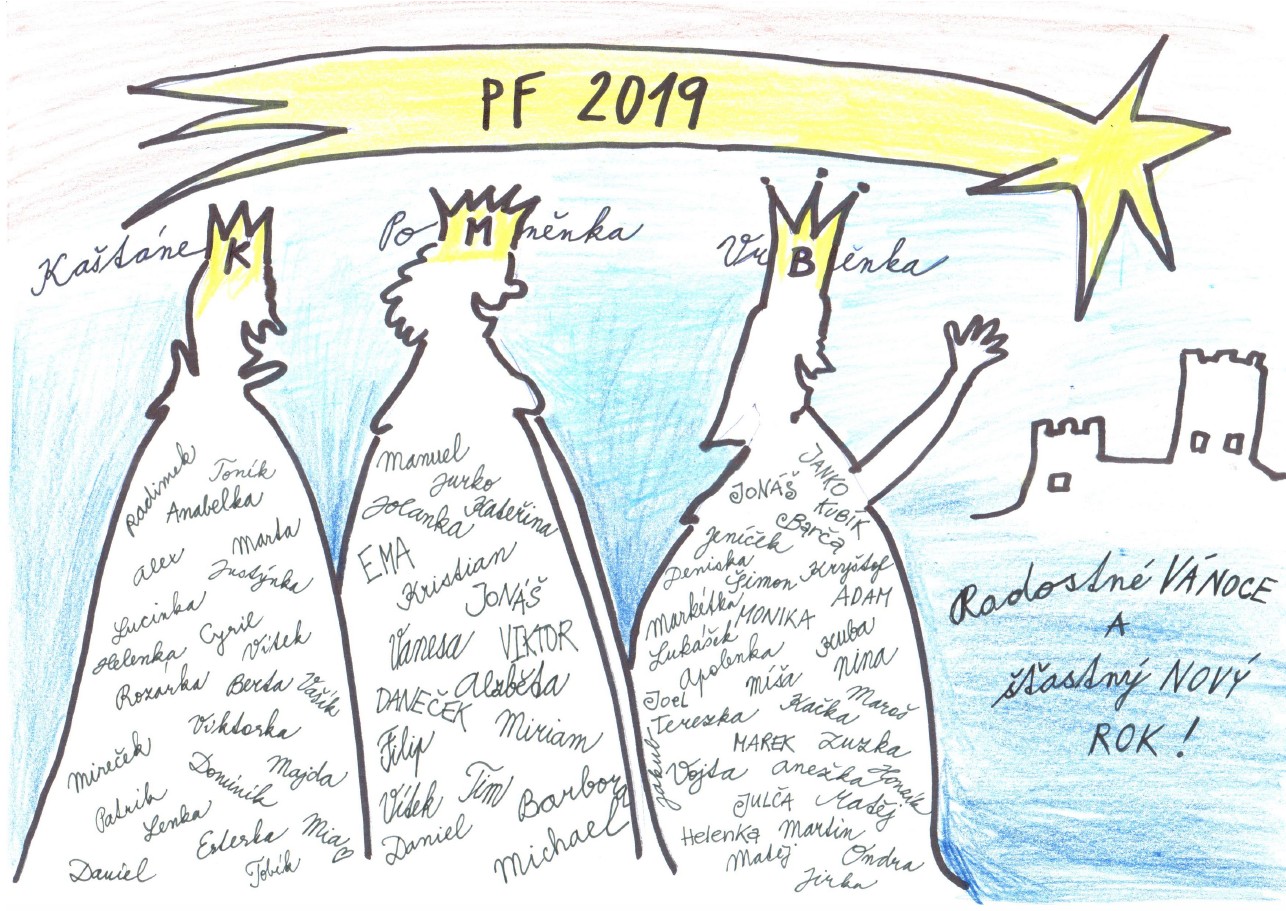 PF 2019
Kaštáne K
Po M něnka
Vr B ěnka
Radimek
Toník
Anabelka
Alex
Marta
Justýnka
Lucinka
Cyril
Helenka
Vítek
Rozárka
Berta
Vašík
Viktorka
Mireček
Dominik
Majda
Patrik
Lenka
Esterka
Mia
Daniel
Tobík
Manuel
Jurko
Jolanka
Kateřina
EMA
Kristian
JONÁŠ
Vanesa
VIKTOR
Alžběta
DANEČEK
Filip
Miriam
Vítek
Tim
Barbora
Daniel
Michael
JANKO
JONÁŠ
KUBÍK
Barča
Jeníček
Deniska
Šimon
Kryštof
ADAM
Markétka
MONIKA
Lukášek
Kuba
Apolenka
Nina
Míša
Joel
Maroš
Terezka
Kačka
MAREK
Zuzka
Jakub
Vojta
Anežka
Honzík
JULČA
Matěj
Helenka
Martin
Matěj
Ondra
Jirka
Radostné VÁNOCE
A
šťastný NOVÝ
ROK!